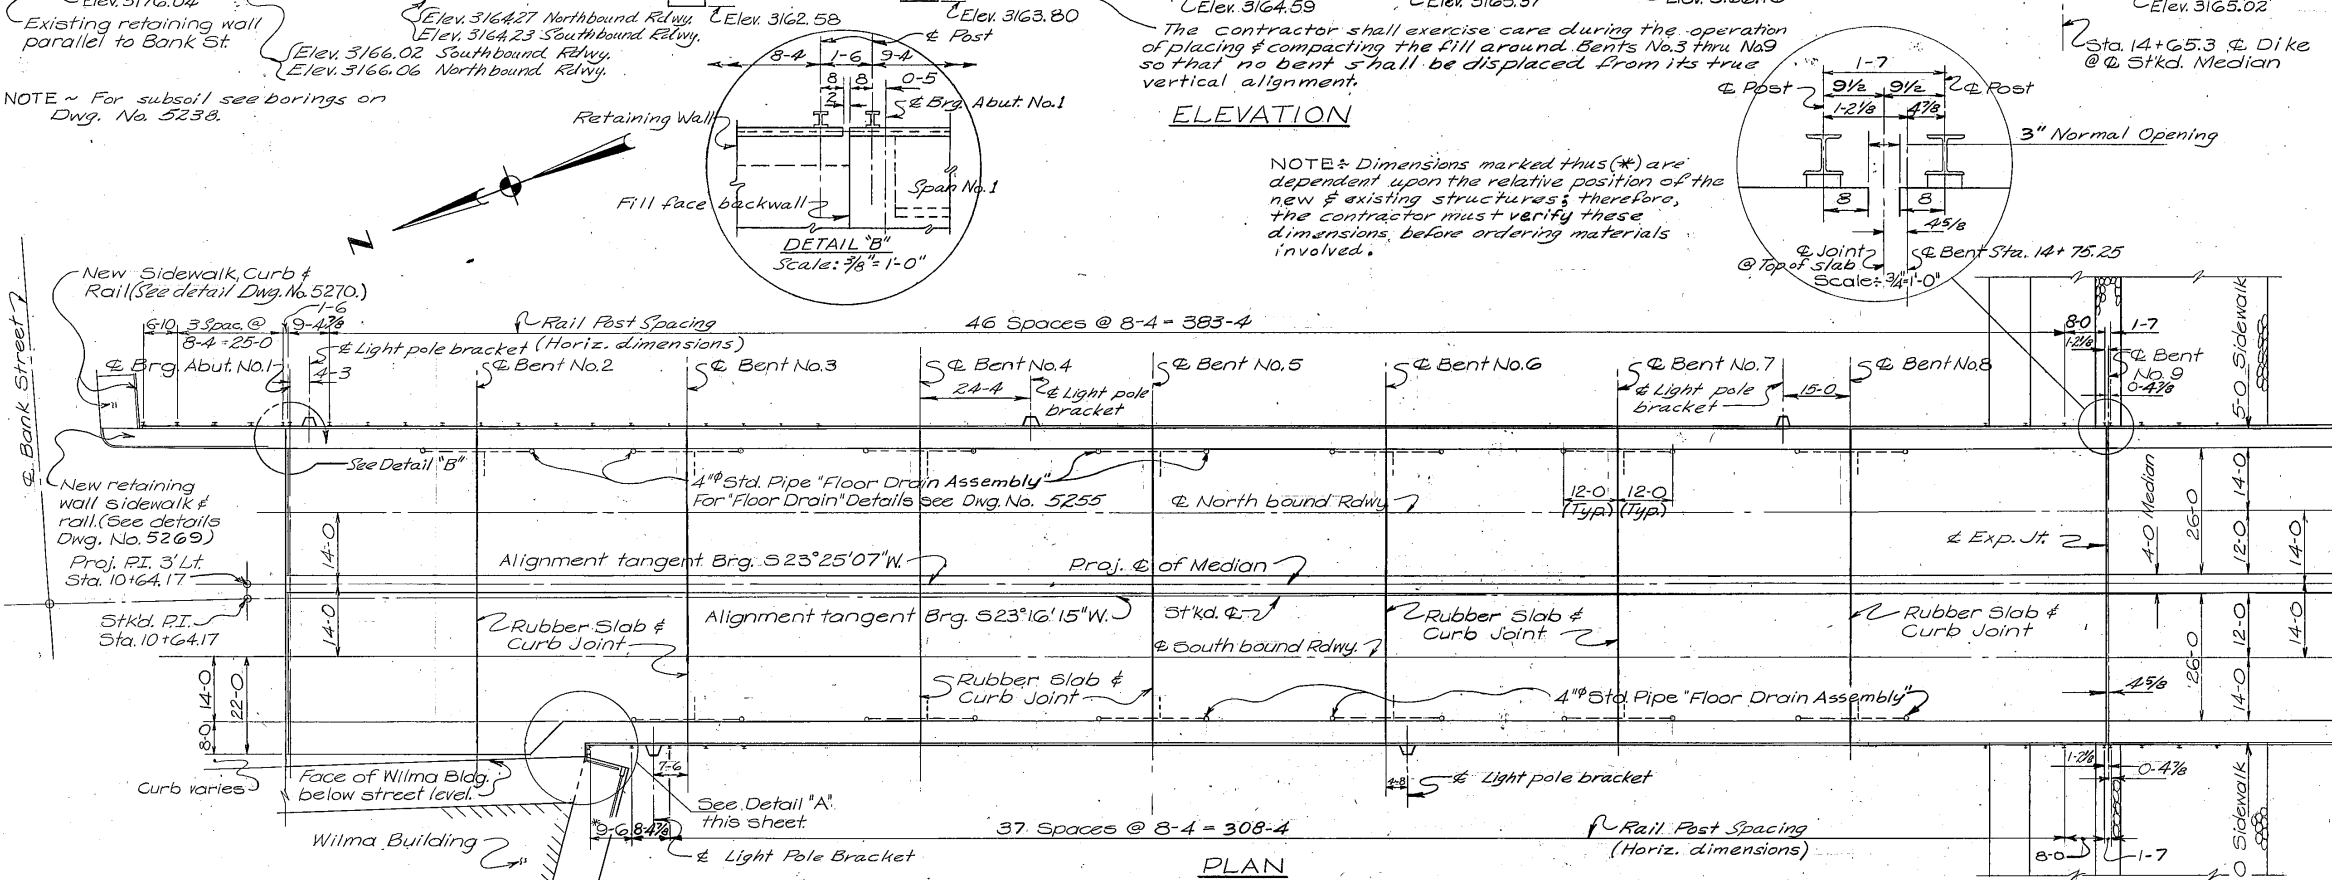 Elev. 3176.04
Existing retaining wall
parallel to Bank St.
Elev. 3164.27 Northbound Rdwy.
Elev. 3164.23 Southbound Rdwy.
Elev. 3166.02 Southbound Rdwy.
Elev. 3166.06 Northbound Rdwy.
NOTE ~ For subsoil see borings on
Dwg. No. 5238.
Elev. 3162.58
Elev. 3163.80
℄ Post
8-4
1-6
9-4
8
8
0-5
2
℄ Brg. Abut. No.1
Retaining Wall
Span No.1
Fill face backwall
DETAIL "B"
Scale: 3/8" = 1'-0"
Elev. 3164.59
The contractor shall exercise care during the operation
of placing & compacting the fill around Bents No.3 thru No9
so that no bent shall be displaced from its true
vertical alignment.
ELEVATION
NOTE: Dimensions marked thus (*) are
dependent upon the relative position of the
new & existing structures; therefore,
the contractor must verify these
dimensions before ordering materials
involved.
Elev. 3165.02
Sta. 14+65.3 ℄ Dike
@ ℄ Stkd. Median
1-7
℄ Post
9½
9½
℄ Post
1-2⅛
4⅞
3" Normal Opening
8
8
4⅝
℄ Joint
@ Top of slab
℄ Bent Sta. 14+75.25
Scale: ¾"=1'-0"
N
New Sidewalk, Curb &
Rail (See detail Dwg. No. 5270.)
℄ Bank Street
6-10
3 Spac. @
8-4 = 25-0
1-6
9-4⅞
Rail Post Spacing
(Horiz. dimensions)
46 Spaces @ 8-4 = 383-4
8-0
1-7
1-2⅛
℄ Brg. Abut. No.1
℄ Light pole bracket
4-3
℄ Bent No.2
℄ Bent No.3
℄ Bent No.4
24-4
℄ Light pole
bracket
℄ Bent No.5
℄ Bent No.6
℄ Bent No.7
℄ Light pole
bracket
15-0
℄ Bent No.8
℄ Bent
No.9
0-4⅞
5-0 Sidewalk
See Detail "B"
New retaining
wall sidewalk &
rail. (See details
Dwg. No. 5269)
Proj. P.I. 3' Lt.
Sta. 10+64.17
Stkd. P.I.
Sta. 10+64.17
4"ᶲ Std. Pipe "Floor Drain Assembly"
For "Floor Drain" Details see Dwg. No. 5255
℄ North bound Rdwy.
12-0
(Typ.)
12-0
(Typ.)
℄ Exp. Jt.
4-0 Median
26-0
14-0
12-0
14-0
14-0
Alignment tangent Brg. S 23°25'07" W.
Proj. ℄ of Median
Alignment tangent Brg. S 23°16'15" W.
St'kd. ℄
14-0
Rubber Slab &
Curb Joint
℄ South bound Rdwy.
Rubber Slab &
Curb Joint
Rubber Slab &
Curb Joint
Rubber Slab &
Curb Joint
4"ᶲ Std. Pipe "Floor Drain Assembly"
26-0
12-0
14-0
14-0
4⅝
14-0
8-0
22-0
Curb varies
Face of Wilma Bldg.
below street level.
Wilma Building
7-6
See Detail "A"
this sheet
*9-6
8-4⅞
℄ Light Pole Bracket
37 Spaces @ 8-4 = 308-4
4-8
℄ Light pole bracket
Rail Post Spacing
(Horiz. dimensions)
1-2⅛
0-4⅞
8-0
1-7
0 Sidewalk
PLAN